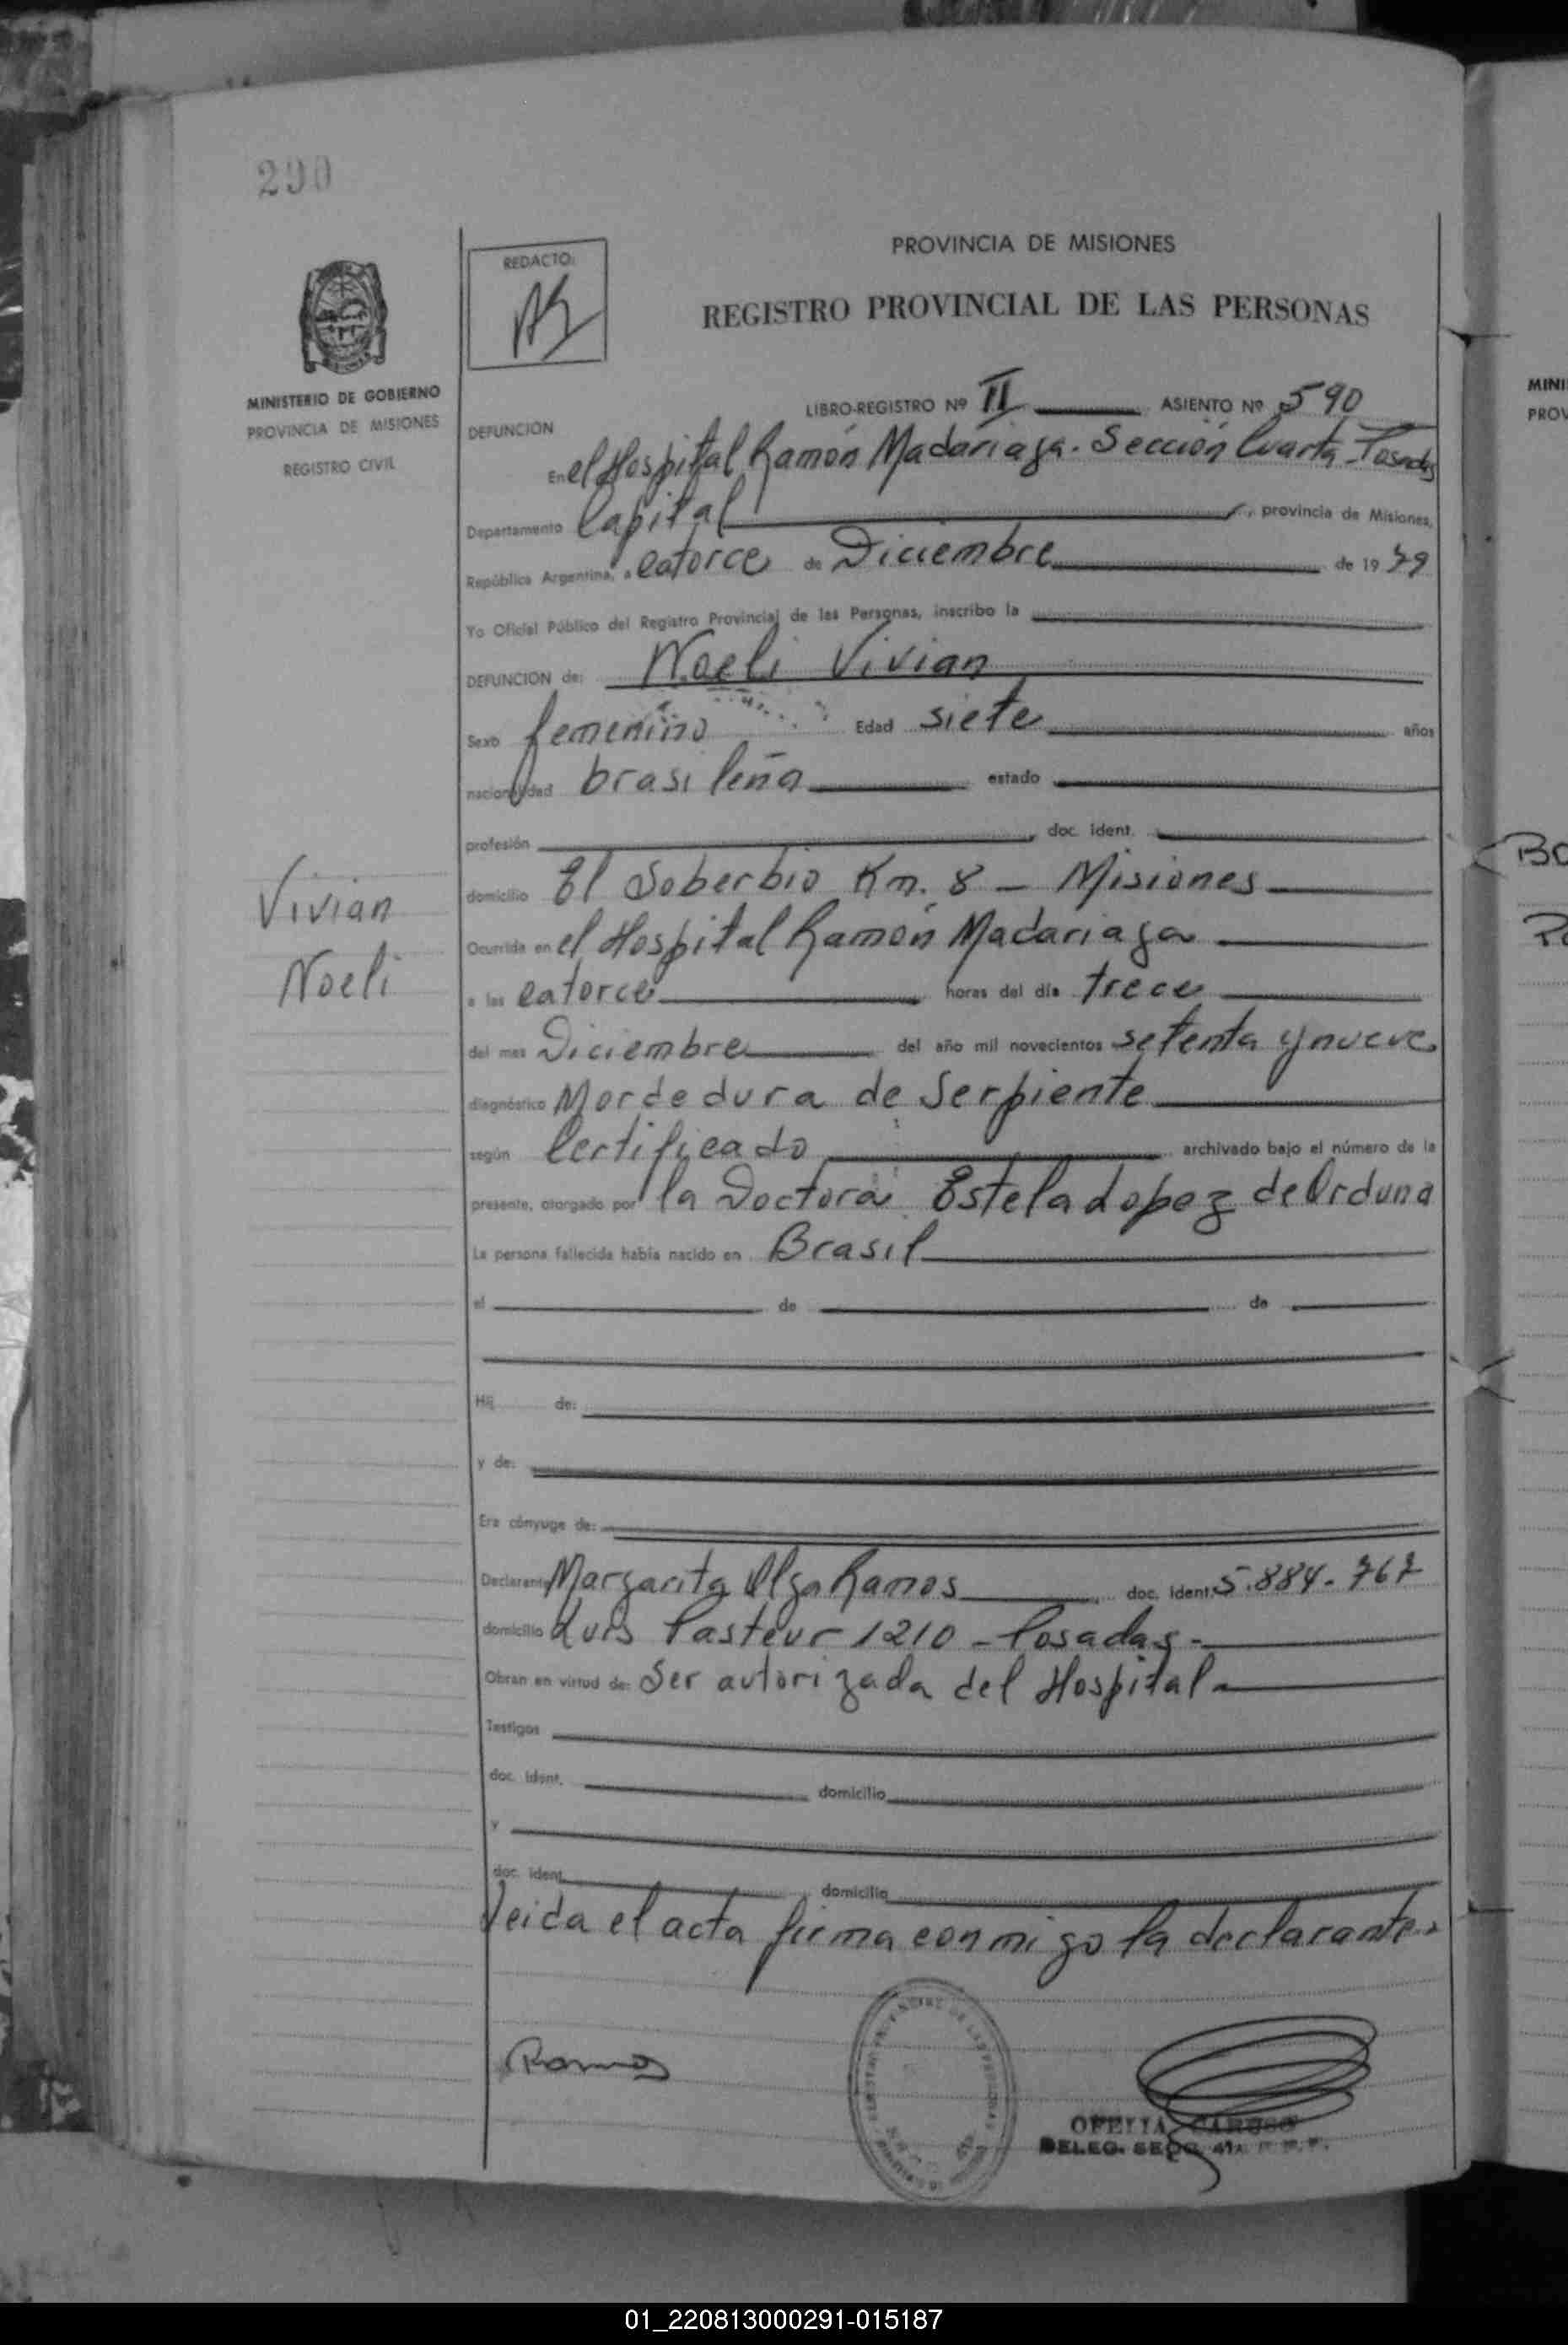 290
PROVINCIA DE MISIONES
REDACTO:
REGISTRO PROVINCIAL DE LAS PERSONAS
MINISTERIO DE GOBIERNO
PROVINCIA DE MISIONES
REGISTRO CIVIL
LIBRO-REGISTRO Nº II ASIENTO Nº 590
DEFUNCION
En el Hospital Ramón Madariaga. Sección Cuarta - Posadas
Departamento Capital, provincia de Misiones,
República Argentina, a catorce de Diciembre de 1979
Yo Oficial Público del Registro Provincial de las Personas, inscribo la
DEFUNCION de: Noeli Vivian
Sexo femenino Edad siete años
nacionalidad brasileña estado
profesión doc. ident.
domicilio El Soberbio Km. 8 - Misiones
Vivian
Noeli
Ocurrida en el Hospital Ramón Madariaga
a las catorce horas del día trece
del mes Diciembre del año mil novecientos setenta y nueve
diagnóstico Mordedura de Serpiente
según Certificado archivado bajo el número de la
presente, otorgado por la Doctora Estela Lopez de Orduna
La persona fallecida había nacido en Brasil
el de de
Hij de:
y de:
Era cónyuge de:
Declarante Margarita Olga Ramos doc. ident. 5.884.767
domicilio Luis Pasteur 1210 - Posadas -
Obran en virtud de: Ser autorizada del Hospital
Testigos
doc. ident. domicilio
y
doc. ident. domicilio
Leida el acta firma conmigo la declarante.
Ramos
OFELIA CARUSO
DELEG. SECC. 4ta
MINI
PROV
BO
01_220813000291-015187